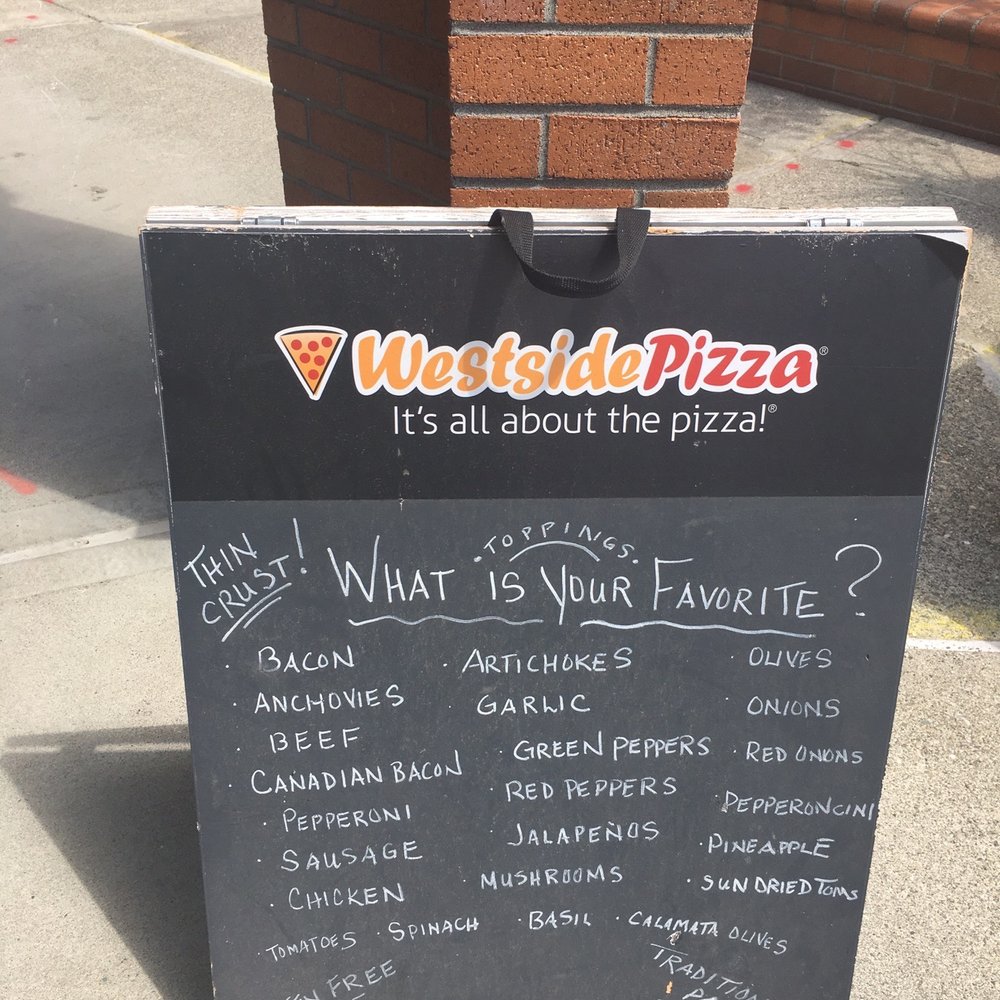 WestsidePizza®
It's all about the pizza!®
THIN CRUST!
TOPPINGS
WHAT IS YOUR FAVORITE?
· BACON · ARTICHOKES · OLIVES
· ANCHOVIES · GARLIC · ONIONS
· BEEF · GREEN PEPPERS · RED ONIONS
· CANADIAN BACON · RED PEPPERS · PEPPERONCINI
· PEPPERONI · JALAPEÑOS · PINEAPPLE
· SAUSAGE · MUSHROOMS · SUN DRIED TOMS
· CHICKEN
· TOMATOES · SPINACH · BASIL · CALAMATA OLIVES
FREE